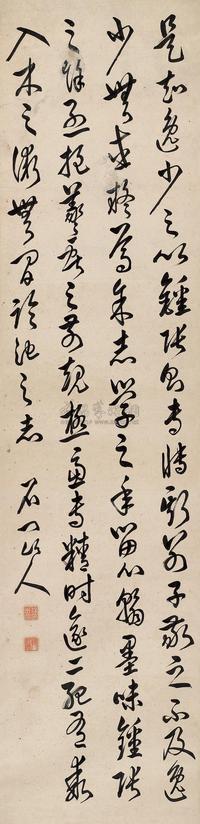 是知逸少之比鍾張則專博斯別子敬之不及逸
少無或疑焉余志學之年留心翰墨味鍾張
之餘烈挹羲獻之前規極慮專精時逾二紀有乖
入木之術無間臨池之志 石門山人